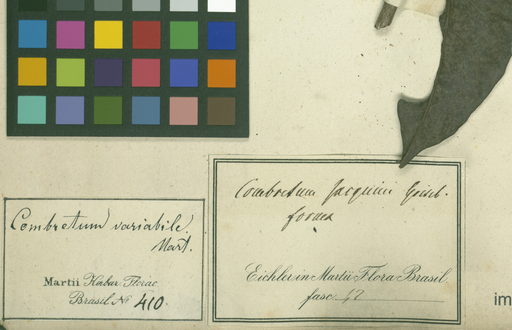 Combretum variabile
Mart.
Martii Herbar. Florae
Brasil. No 410.
Combretum Jacquini Griseb.
forma
Eichler in Martii Flora Brasil.
fasc.
im